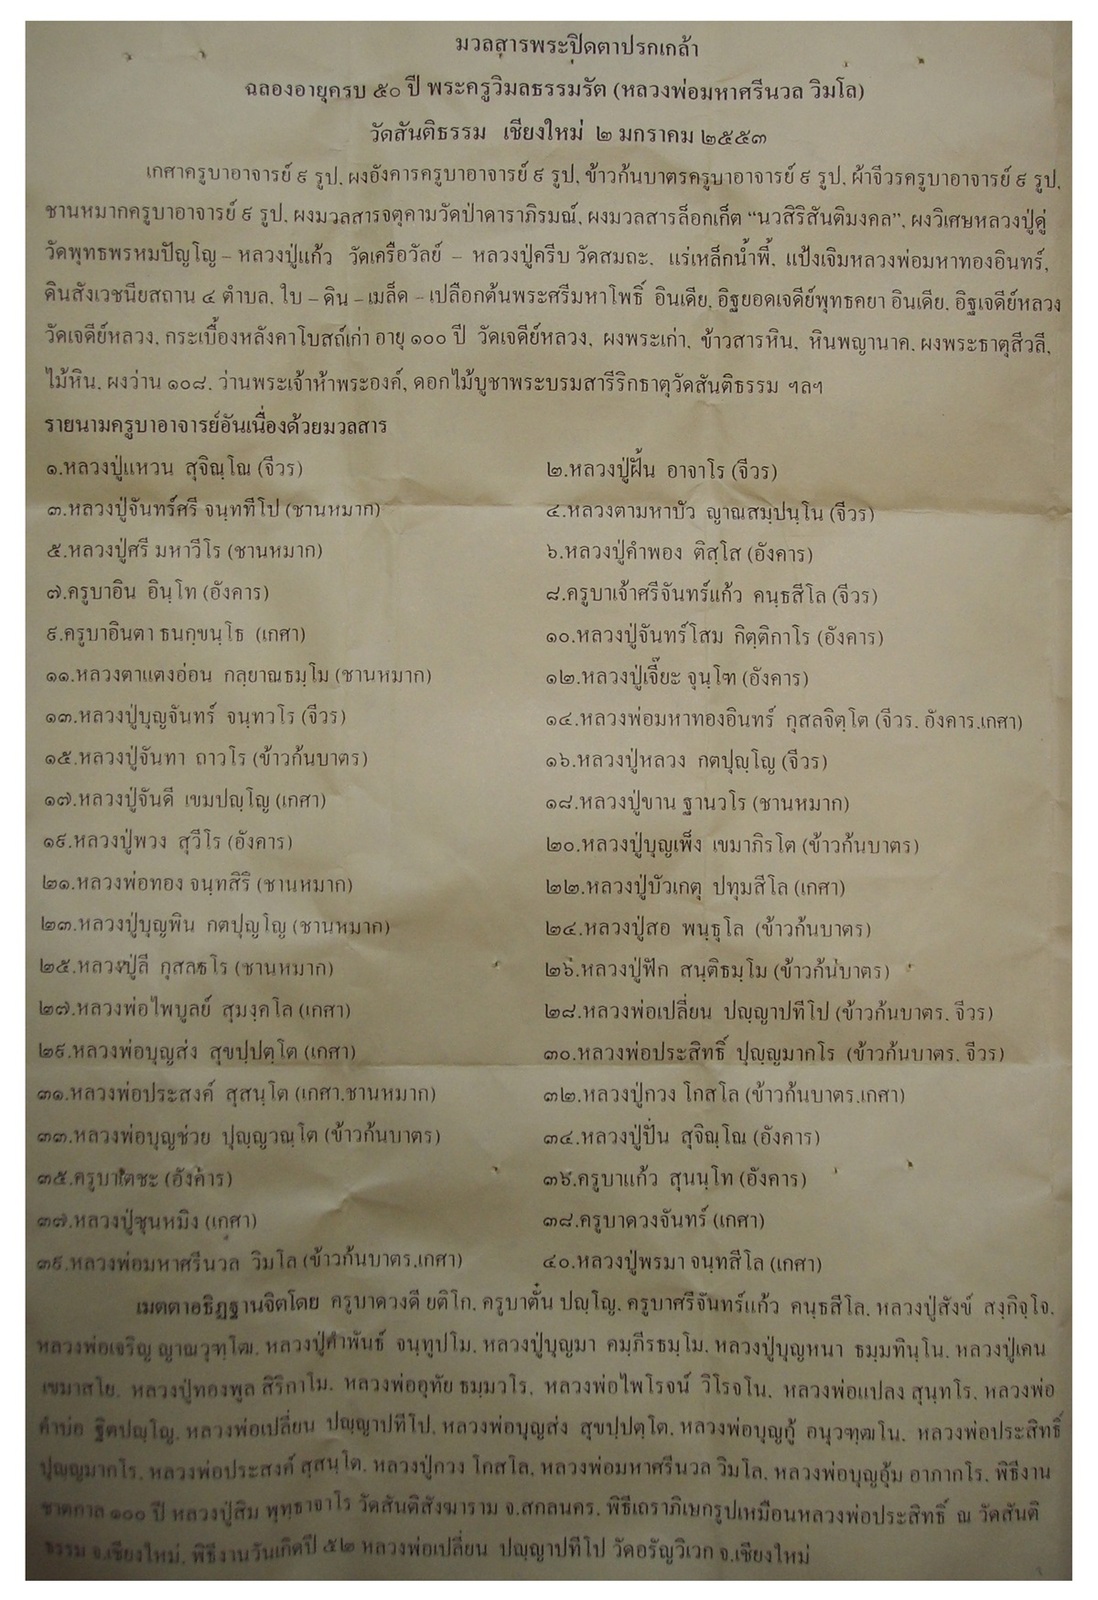 มวลสารพระปิดตาปรกเกล้า
ฉลองอายุครบ ๕๐ ปี พระครูวิมลธรรมรัต (หลวงพ่อมหาศรีนวล วิมโล)
วัดสันติธรรม เชียงใหม่ ๒ มกราคม ๒๕๕๓
เกศาครูบาอาจารย์ ๙ รูป, ผงอังคารครูบาอาจารย์ ๙ รูป, ข้าวก้นบาตรครูบาอาจารย์ ๙ รูป, ผ้าจีวรครูบาอาจารย์ ๙ รูป,
ชานหมากครูบาอาจารย์ ๙ รูป, ผงมวลสารจตุคามวัดป่าดาราภิรมณ์, ผงมวลสารล็อกเก็ต “นวสิริสันติมงคล”, ผงวิเศษหลวงปู่ดู่
วัดพุทธพรหมปัญโญ – หลวงปู่แก้ว วัดเครือวัลย์ – หลวงปู่ครีบ วัดสมถะ, แร่เหล็กน้ำพี้, แป้งเจิมหลวงพ่อมหาทองอินทร์,
ดินสังเวชนียสถาน ๔ ตำบล, ใบ – ดิน – เมล็ด – เปลือกต้นพระศรีมหาโพธิ์ อินเดีย, อิฐยอดเจดีย์พุทธคยา อินเดีย, อิฐเจดีย์หลวง
วัดเจดีย์หลวง, กระเบื้องหลังคาโบสถ์เก่า อายุ ๑๐๐ ปี วัดเจดีย์หลวง, ผงพระเก่า, ข้าวสารหิน, หินพญานาค, ผงพระธาตุสีวลี,
ไม้หิน, ผงว่าน ๑๐๘, ว่านพระเจ้าห้าพระองค์, ดอกไม้บูชาพระบรมสารีริกธาตุวัดสันติธรรม ฯลฯ
รายนามครูบาอาจารย์อันเนื่องด้วยมวลสาร
๑.หลวงปู่แหวน สุจิณฺโณ (จีวร) ๒.หลวงปู่ฝั้น อาจาโร (จีวร)
๓.หลวงปู่จันทร์ศรี จนฺททีโป (ชานหมาก) ๔.หลวงตามหาบัว ญาณสมฺปนฺโน (จีวร)
๕.หลวงปู่ศรี มหาวีโร (ชานหมาก) ๖.หลวงปู่คำพอง ติสฺโส (อังคาร)
๗.ครูบาอิน อินฺโท (อังคาร) ๘.ครูบาเจ้าศรีจันทร์แก้ว คนฺธสีโล (จีวร)
๙.ครูบาอินตา ธนกฺขนฺโธ (เกศา) ๑๐.หลวงปู่จันทร์โสม กิตฺติกาโร (อังคาร)
๑๑.หลวงตาแตงอ่อน กลฺยาณธมฺโม (ชานหมาก) ๑๒.หลวงปู่เจี๊ยะ จุนฺโท (อังคาร)
๑๓.หลวงปู่บุญจันทร์ จนฺทวโร (จีวร) ๑๔.หลวงพ่อมหาทองอินทร์ กุสลจิตฺโต (จีวร, อังคาร,เกศา)
๑๕.หลวงปู่จันทา ถาวโร (ข้าวก้นบาตร) ๑๖.หลวงปู่หลวง กตปุญฺโญ (จีวร)
๑๗.หลวงปู่จันดี เขมปญฺโญ (เกศา) ๑๘.หลวงปู่ขาน ฐานวโร (ชานหมาก)
๑๙.หลวงปู่พวง สุวีโร (อังคาร) ๒๐.หลวงปู่บุญเพ็ง เขมาภิรโต (ข้าวก้นบาตร)
๒๑.หลวงพ่อทอง จนฺทสิริ (ชานหมาก) ๒๒.หลวงปู่บัวเกตุ ปทุมสีโล (เกศา)
๒๓.หลวงปู่บุญพิน กตปุญโญ (ชานหมาก) ๒๔.หลวงปู่สอ พนฺธุโล (ข้าวก้นบาตร)
๒๕.หลวงปู่ลี กุสลธโร (ชานหมาก) ๒๖.หลวงปู่ฟัก สนฺติธมฺโม (ข้าวก้นบาตร)
๒๗.หลวงพ่อไพบูลย์ สุมงฺคโล (เกศา) ๒๘.หลวงพ่อเปลี่ยน ปญฺญาปทีโป (ข้าวก้นบาตร, จีวร)
๒๙.หลวงพ่อบุญส่ง สุขปฺปตฺโต (เกศา) ๓๐.หลวงพ่อประสิทธิ์ ปุญฺญมากโร (ข้าวก้นบาตร, จีวร)
๓๑.หลวงพ่อประสงค์ สุสนฺโต (เกศา,ชานหมาก) ๓๒.หลวงปู่กวง โกสโล (ข้าวก้นบาตร,เกศา)
๓๓.หลวงพ่อบุญช่วย ปุญฺญวณฺโต (ข้าวก้นบาตร) ๓๔.หลวงปู่ปั่น สุจิณฺโณ (อังคาร)
๓๕.ครูบาเตชะ (อังคาร) ๓๖.ครูบาแก้ว สุนนฺโท (อังคาร)
๓๗.หลวงปู่ซุนหมิง (เกศา) ๓๘.ครูบาดวงจันทร์ (เกศา)
๓๙.หลวงพ่อมหาศรีนวล วิมโล (ข้าวก้นบาตร,เกศา) ๔๐.หลวงปู่พรมา จนฺทสีโล (เกศา)
เมตตาอธิฏฐานจิตโดย ครูบาดวงดี ยติโก, ครูบาตั๋น ปญฺโญ, ครูบาศรีจันทร์แก้ว คนฺธสีโล, หลวงปู่สังข์ สงฺกิจฺโจ,
หลวงพ่อเจริญ ญาณวุฑฺโฒ, หลวงปู่คำพันธ์ จนฺทูปโม, หลวงปู่บุญมา คมฺภีรธมฺโม, หลวงปู่บุญหนา ธมฺมทินฺโน, หลวงปู่เคน
เขมาสโย, หลวงปู่ทองพูล สิริกาโม, หลวงพ่ออุทัย ธมฺมวโร, หลวงพ่อไพโรจน์ วิโรจโน, หลวงพ่อแปลง สุนฺทโร, หลวงพ่อ
คำบ่อ ฐิตปญฺโญ, หลวงพ่อเปลี่ยน ปญฺญาปทีโป, หลวงพ่อบุญส่ง สุขปฺปตฺโต, หลวงพ่อบุญกู้ อนุวฑฺฒโน, หลวงพ่อประสิทธิ์
ปุญฺญมากโร, หลวงพ่อประสงค์ สุสนฺโต, หลวงปู่กวง โกสโล, หลวงพ่อมหาศรีนวล วิมโล, หลวงพ่อบุญอุ้ม อาภากโร, พิธีงาน
ชาตกาล ๑๐๐ ปี หลวงปู่สิม พุทฺธาจาโร วัดสันติสังฆาราม จ.สกลนคร, พิธีเถราภิเษกรูปเหมือนหลวงพ่อประสิทธิ์ ณ วัดสันติ
ธรรม จ.เชียงใหม่, พิธีงานวันเกิดปี ๕๒ หลวงพ่อเปลี่ยน ปญฺญาปทีโป วัดอรัญวิเวก จ.เชียงใหม่